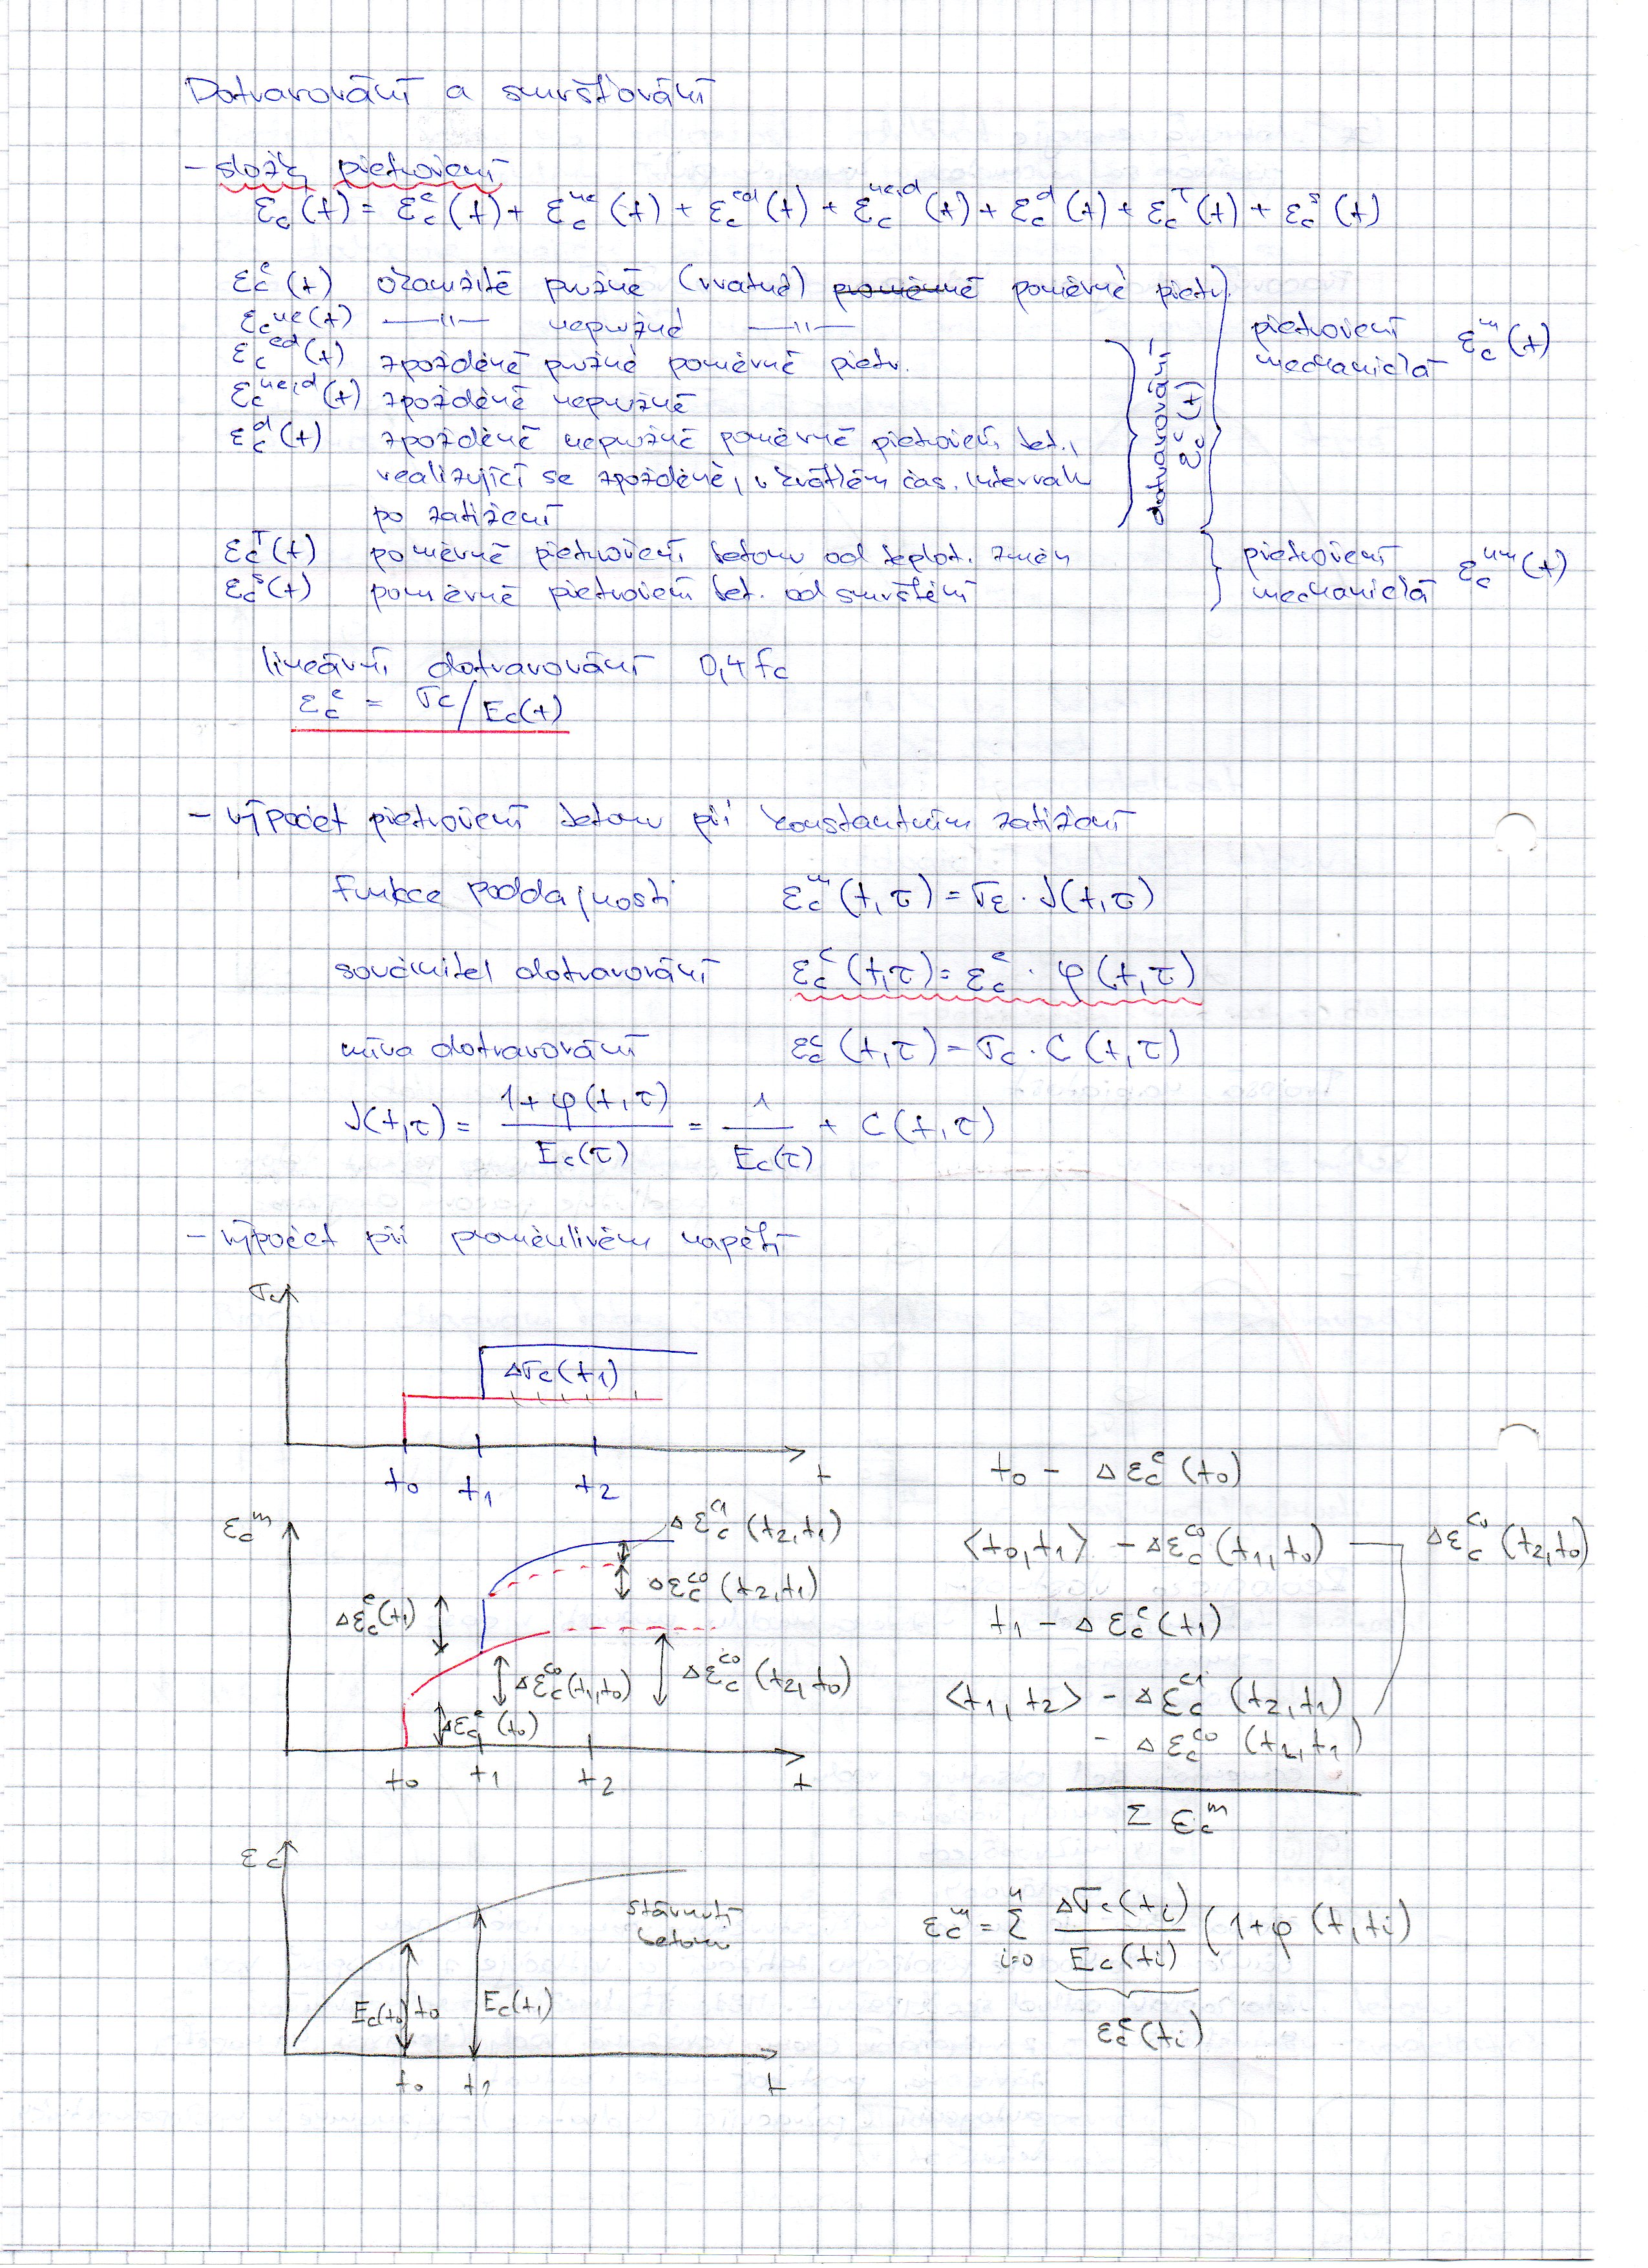 Dotvarování a smršťování
- složky přetvoření
εc(t) = εc^e(t) + εc^ne(t) + εc^ed(t) + εc^ne,d(t) + εc^d(t) + εc^T(t) + εc^s(t)
εc^e(t) okamžité pružné (vratné) poměrné přetv.
εc^ne(t) —"— nepružné —"—
εc^ed(t) zpožděné pružné poměrné přetv.
εc^ne,d(t) zpožděné nepružné
εc^d(t) zpožděné nepružné poměrné přetvoření bet.,
realizující se zpožděně, v krátkém čas. intervalu
po zatížení
dotvarování εc^c(t)
přetvoření
mechanická εc^m(t)
εc^T(t) poměrné přetvoření betonu od teplot. změn
εc^s(t) poměrné přetvoření bet. od smrštění
přetvoření
mechanická εc^nm(t)
lineární dotvarování 0,4 fc
εc^e = σc/Ec(t)
- výpočet přetvoření betonu při konstantním zatížení
funkce poddajnosti εc^m(t,τ) = σc · J(t,τ)
součinitel dotvarování εc^c(t,τ) = εc^e · φ(t,τ)
míra dotvarování εc^c(t,τ) = σc · C(t,τ)
J(t,τ) = (1+φ(t,τ))/Ec(τ) = 1/Ec(τ) + C(t,τ)
- výpočet při proměnlivém napětí
σc
Δσc(t1)
t0 t1 t2 t
εc^m
Δεc^c1(t2,t1)
Δεc^c0(t2,t1)
Δεc^e(t1)
Δεc^c0(t1,t0)
Δεc^c0(t2,t0)
Δεc^e(t0)
t0 t1 t2 t
t0 - Δεc^e(t0)
<t0,t1> - Δεc^c0(t1,t0) — Δεc^c0(t2,t0)
t1 - Δεc^e(t1)
<t1,t2> - Δεc^c1(t2,t1)
- Δεc^c0(t2,t1)
Σ εc^m
εc
stárnutí
betonu
Ec(t0) t0 Ec(t1)
t0 t1 t
εc^m = Σ i=0 n Δσc(ti)/Ec(ti) (1+φ(t,ti)
εc^e(ti)